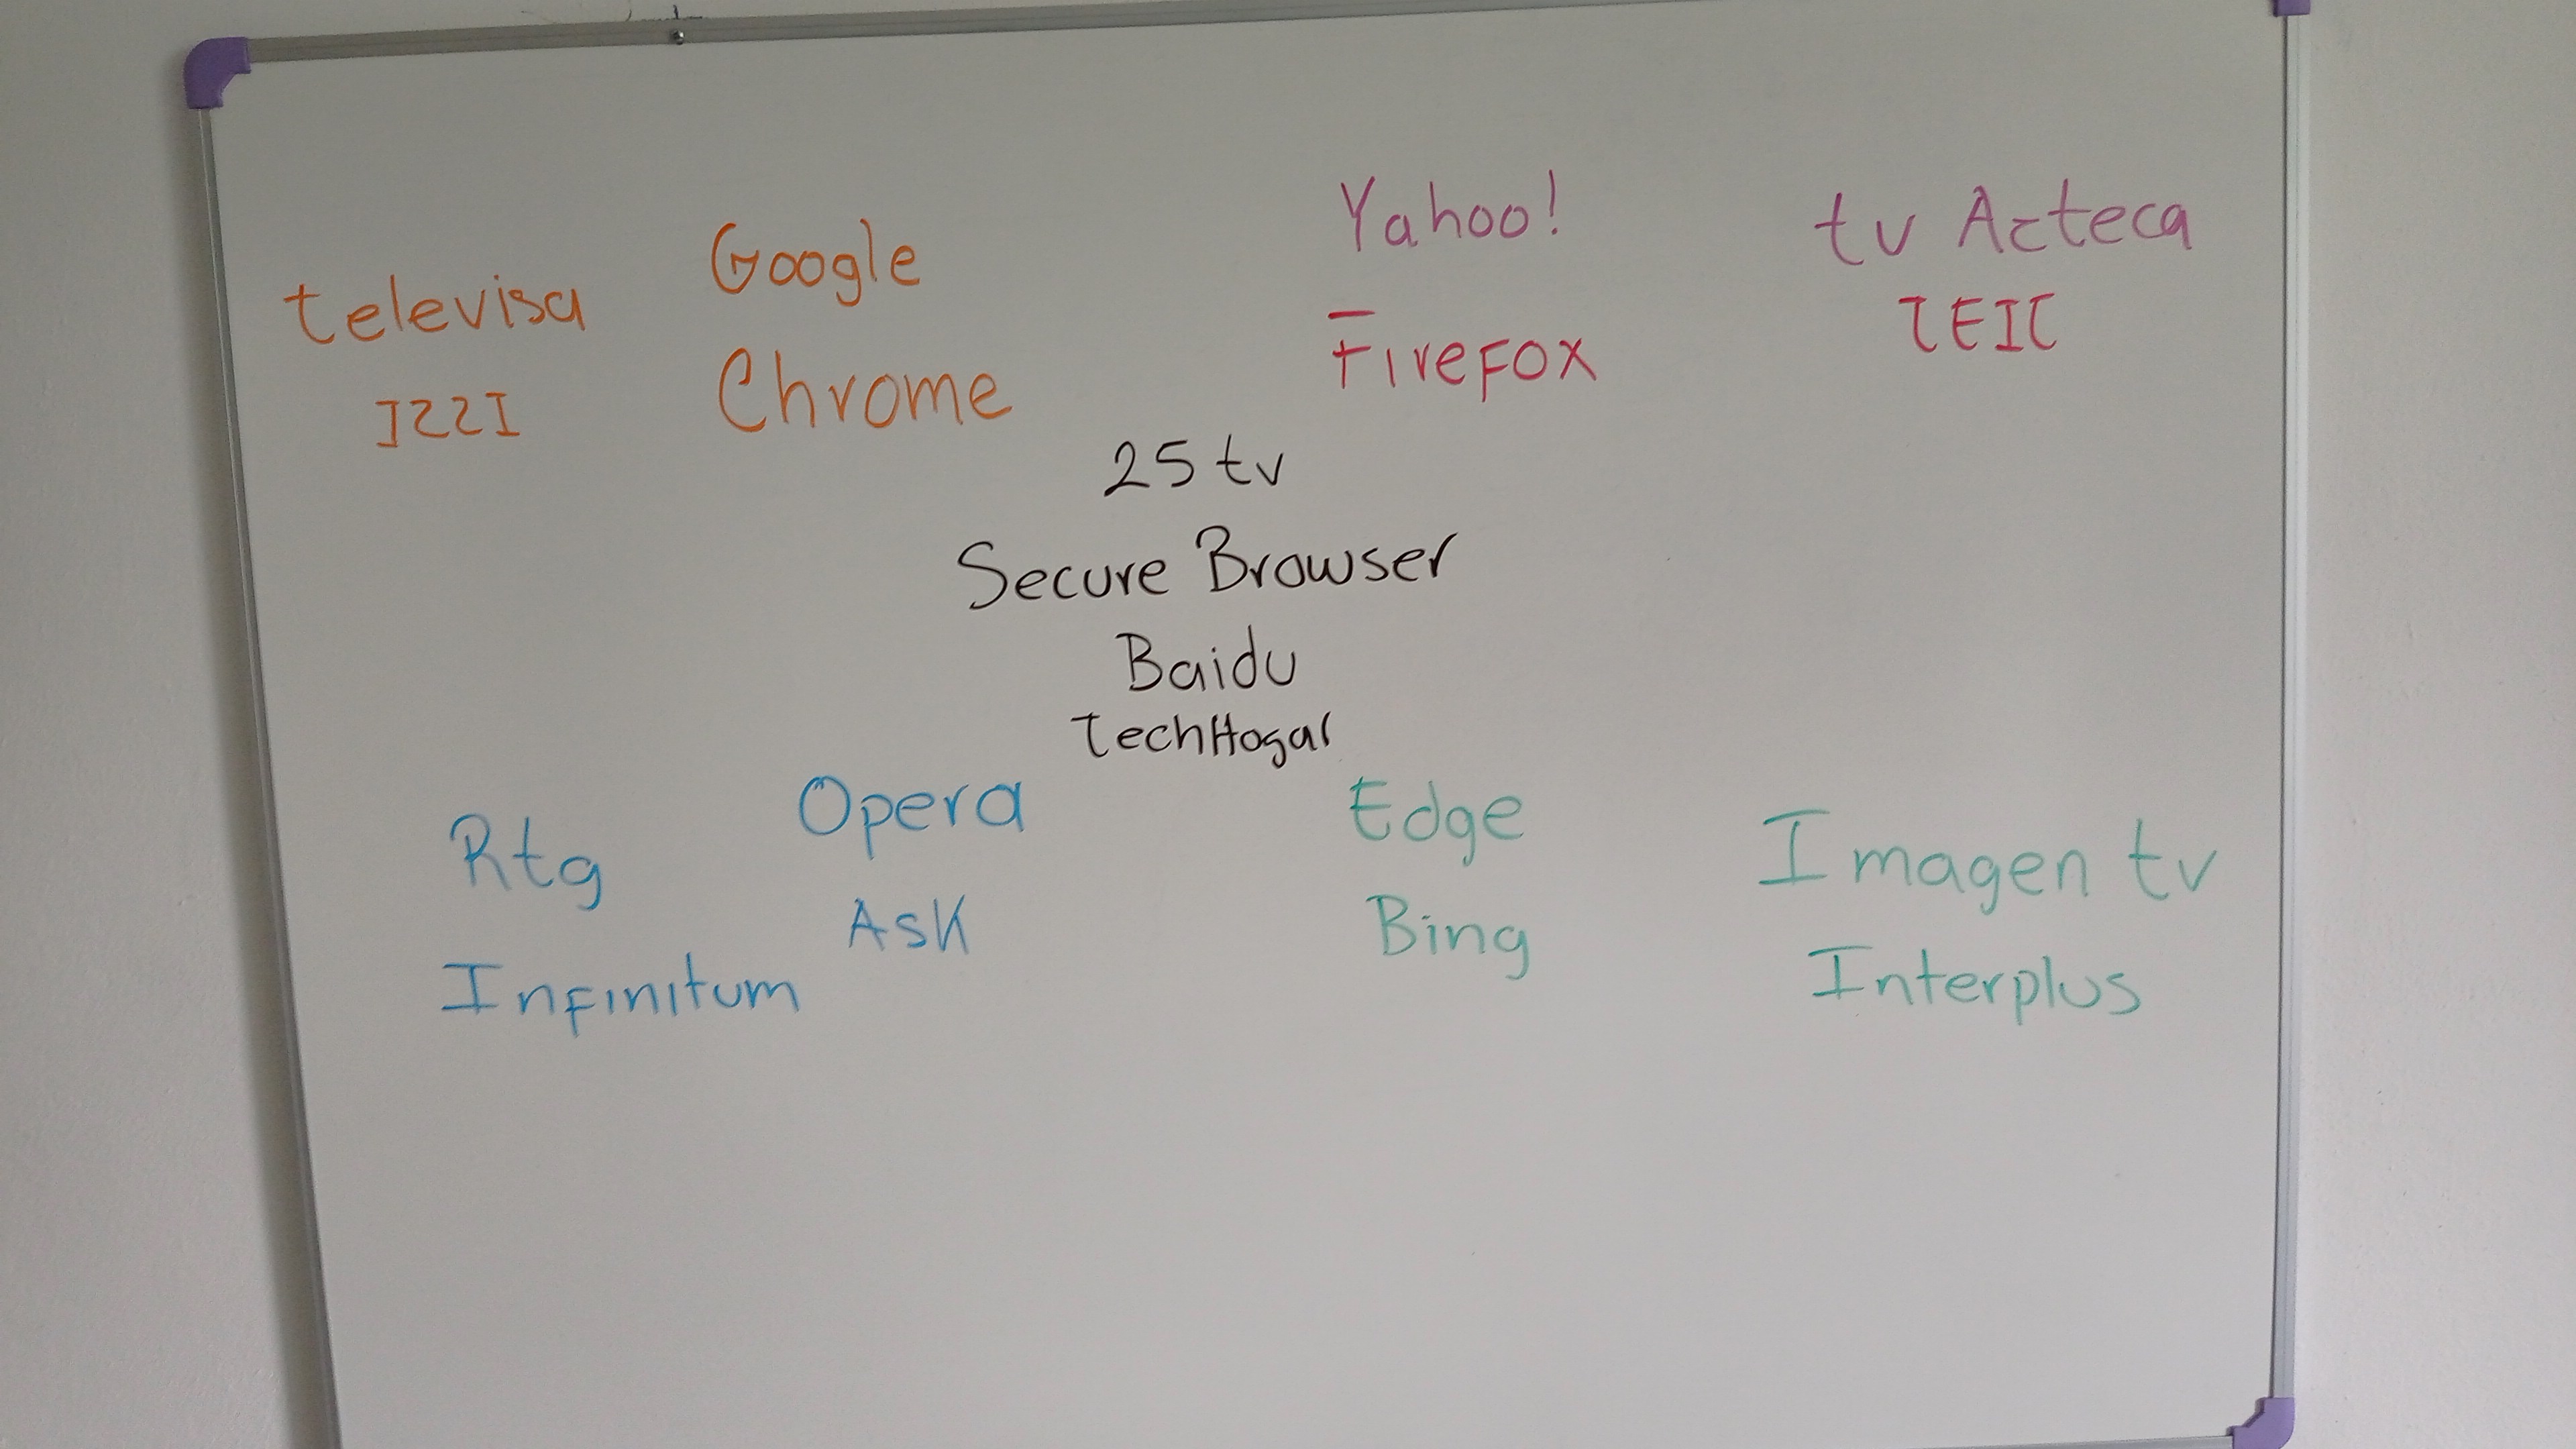 televisa
IZZI
Google
Chrome
Yahoo!
Firefox
tv Azteca
TEIC
25 tv
Secure Browser
Baidu
TechHogar
Rtg
Infinitum
Opera
Ask
Edge
Bing
Imagen tv
Interplus